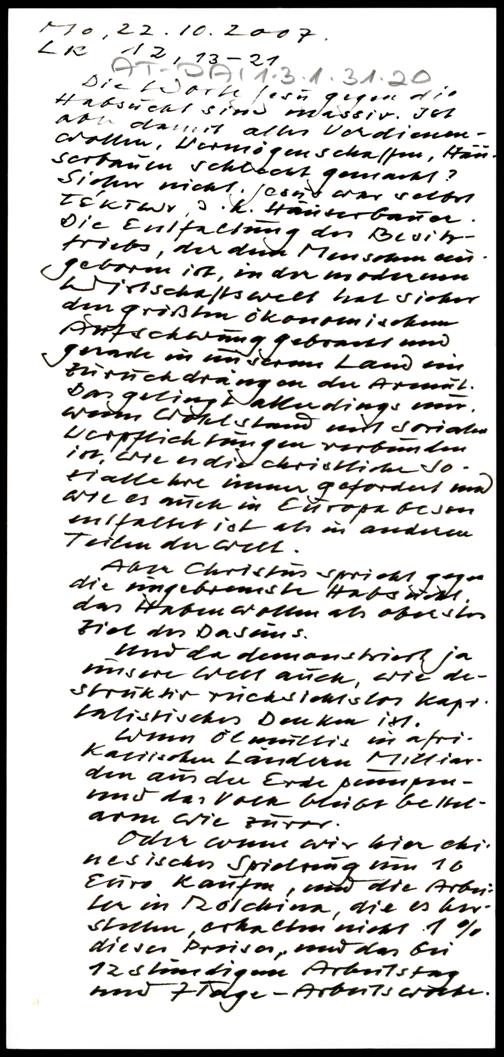 Mo, 22.10.2007.
LK 12, 13-21
AT-DAI 1.3.1.31.20
Die Worte Jesu gegen die
Habsucht sind massiv. Ist
aber damit alles Verdienen-
wollen, Vermögenschaffen, Häu-
serbauen schlecht gemacht?
Sicher nicht. Jesus war selbst
TEKTWV, d.h. Häuserbauer.
Die Entfaltung des Besitz-
triebs, der dem Menschen an-
geboren ist, in der modernen
Wirtschaftswelt hat sicher
den größten ökonomischen
Aufschwung gebracht und
gerade in unserem Land ein
Zurückdrängen der Armut.
Das gelingt allerdings nur,
wenn Wohlstand mit sozialen
Verpflichtungen verbunden
ist, wie es die christliche So-
ziallehre immer gefordert und
wie es auch in Europa beson
entfaltet ist als in anderen
Teilen der Welt.
Aber Christus spricht gegen
die ungebremste Habsucht,
das Habenwollen als oberstes
Ziel des Daseins.
Und da demonstriert ja
unsere Welt auch, wie de-
struktiv rücksichtslos kapi-
talistisches Denken ist.
Wenn Ölmultis in afri-
kanischen Ländern Milliar-
den aus der Erde pumpen-
und das Volk bleibt bettel-
arm wie zuvor.
Oder wenn wir hier chi-
nesisches Spielzeug um 10
Euro kaufen, und die Arbei-
ter in Rotchina, die es her-
stellen, erhalten nicht 1%
dieses Preises, und das bei
12 stündigem Arbeitstag
und 7 Tage-Arbeitswoche.